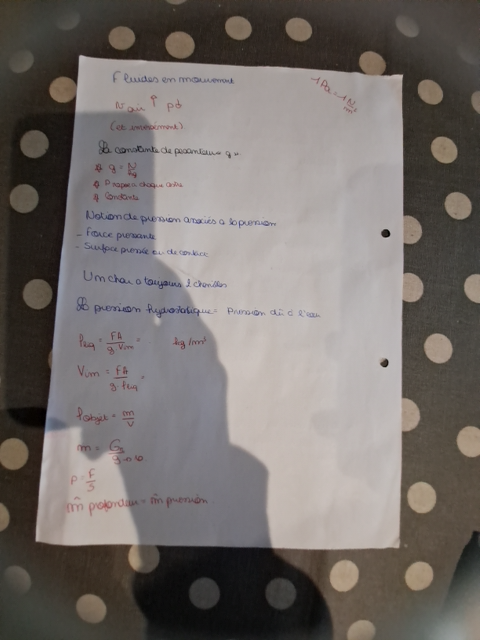 Fluides en mouvement
1Pa = 1N/m²
N air ↑ p↓
(et inversément)
La constante de pesanteur g
g = N/kg
Propre à chaque astre
Constante
Notion de pression associés à la pression
- Force pressante
- Surface pressée ou de contact
Un char a toujours 2 chenilles
La pression hydrostatique = Pression dû à l'eau
ρliq = FA / g Vim = kg/m³
Vim = FA / g ρliq =
ρobjet = m / V
m = G / g
p = F / S
m̂ profondeur = m̂ pression